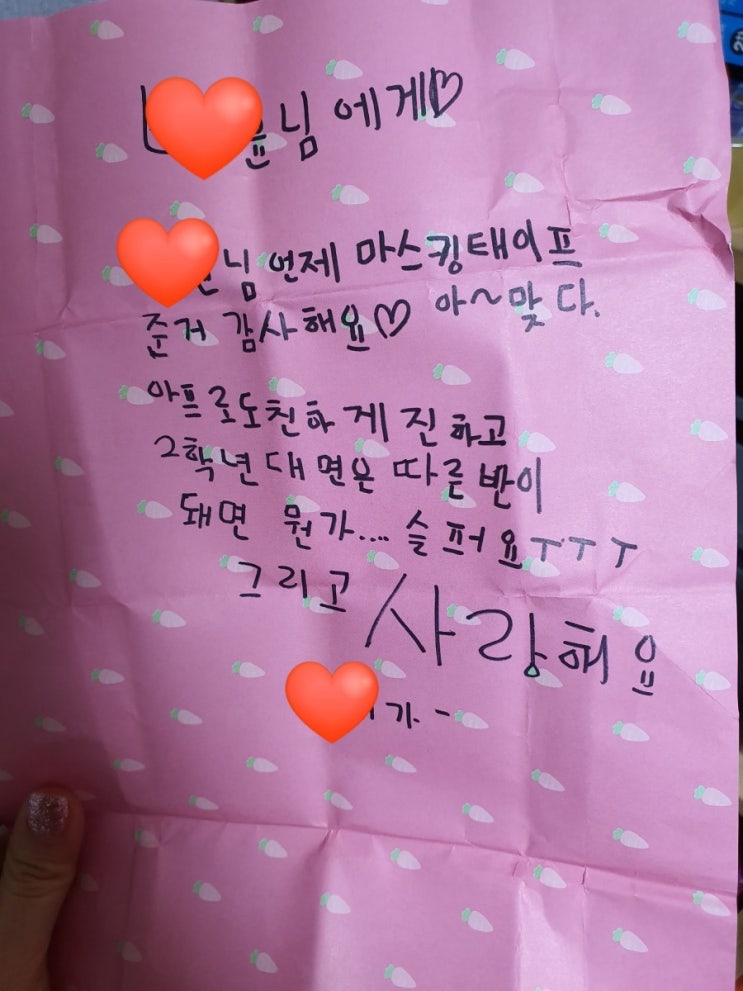 윤님 에게♡
님 언제 마스킹테이프
준거 감사해요♡ 아~맞다.
아프로도친하게 진하고
2학년대면은 따른반이
돼면 뭔가.... 슬퍼요ㅜㅜㅜ
그리고 사랑해요
가. -